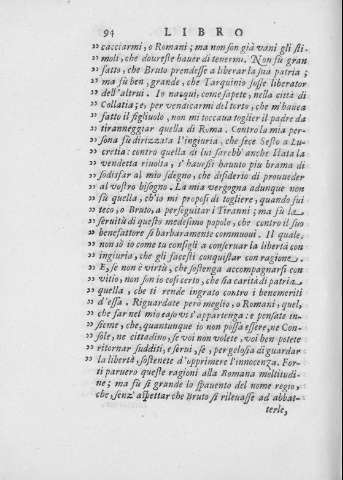 94 LIBRO
” cacciarmi, o Romani; ma non son già vani gli sti-
” moli, che doureste hauer di tenermi. Non fù gran
” fatto, che Bruto prendesse a liberar la sua patria;
” ma fù ben, grande, che Tarquinio fosse liberator
” dell'altrui. Io nacqui, come sapete, nella città di
” Collatia; e, per vendicarmi del torto, che m'hauea
” fatto il figliuolo, non mi toccaua toglier il padre da
” tiranneggiar quella di Roma. Contro la mia per-
” sona fù dirizzata l'ingiuria, che fece Sesto a Lu-
” cretia: contro quella di lui sarebb' anche stata la
” vendetta riuolta, s'hauessi hauuto piu brama di
” sodisfar al mio sdegno, che disiderio di proueder
” al vostro bisogno. La mia vergogna adunque non
” fù quella, ch'io mi proposi di togliere, quando fui
” teco, o Bruto, a perseguitar i Tiranni; ma fù la
” seruitù di questo medesimo popolo, che contro il suo
” benefattore sì barbaramente commuoui. Il quale
” non sò io come tu consigli a conseruar la libertà con
” ingiuria, che gli facesti conquistar con ragione.
” E, se non è virtù, che sostenga accompagnarsi con
” vitio, non son io così certo, che sia carità di patria
” quella, che ti rende ingrato contro i benemeriti
” d'essa. Riguardate però meglio, o Romani, quel,
” che far nel mio caso vi s'appartenga: e pensate in-
” sieme, che, quantunque io non possa essere, ne Con-
” sole, ne cittadino, se voi non volete, voi ben potete
” ritornar sudditi, e serui, se, per gelosia di guardar
” la libertà, sostenete d'opprimere l'innocenza. For-
ti paruero queste ragioni alla Romana moltitudi-
ne; ma fù sì grande lo spauento del nome regio,
che, senz' aspettar che Bruto si rileuasse ad abbat-
terle,